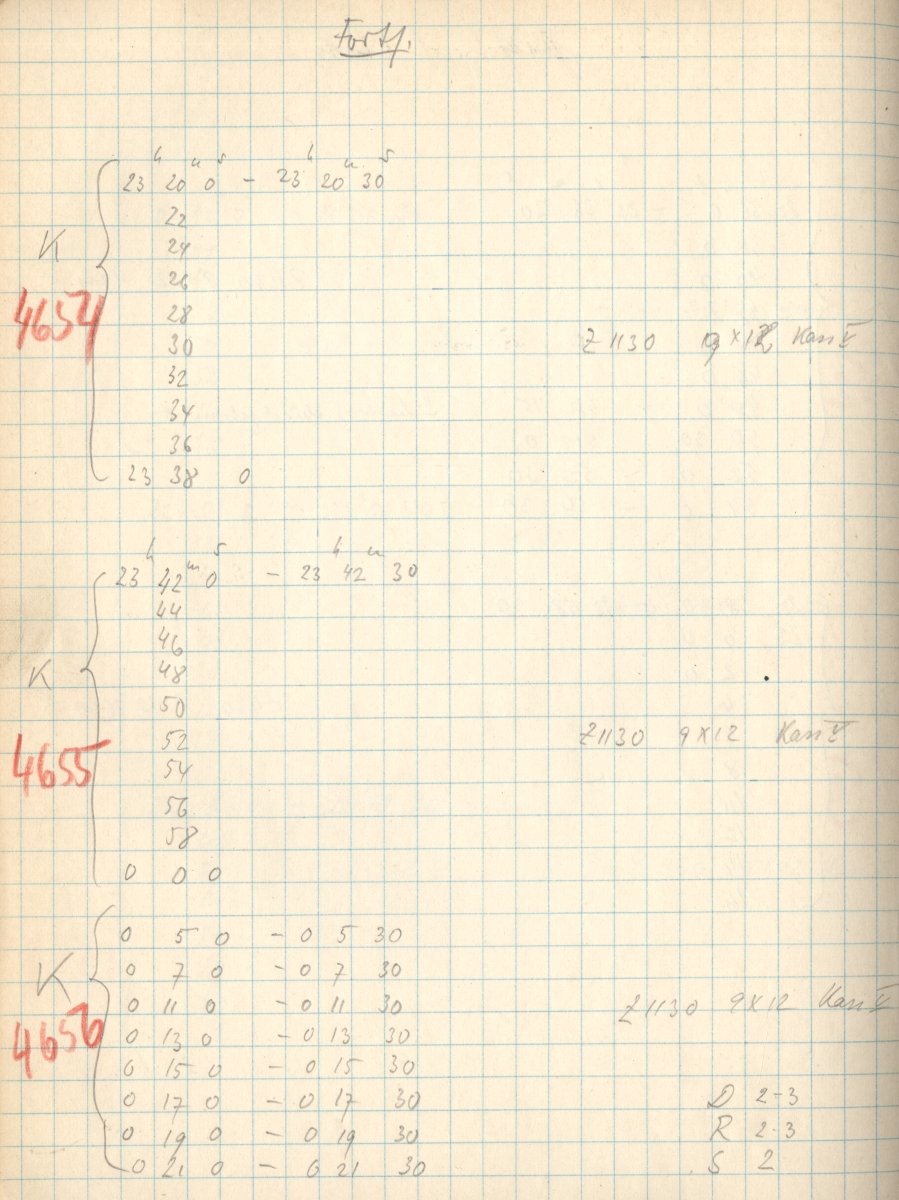 Fortf.
23ʰ 20ᵐ 0ˢ – 23ʰ 20ᵐ 30ˢ
22
K 24
26
4654 28
30 Z 1130 9×12 Kan V
32
34
36
23 38 0
23ʰ 42ᵐ 0ˢ – 23ʰ 42ᵐ 30
44
46
K 48
50
52 Z 1130 9×12 Kan V
4655 54
56
58
0 0 0
0 5 0 – 0 5 30
K 0 7 0 – 0 7 30
0 11 0 – 0 11 30 Z 1130 9×12 Kan V
4656 0 13 0 – 0 13 30
0 15 0 – 0 15 30
0 17 0 – 0 17 30 D 2-3
0 19 0 – 0 19 30 R 2-3
0 21 0 – 0 21 30 S 2